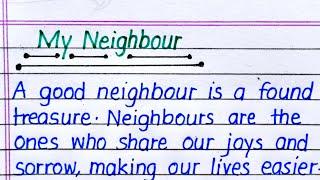 My Neighbour
A good neighbour is a found
treasure. Neighbours are the
ones who share our joys and
sorrow, making our lives easier.